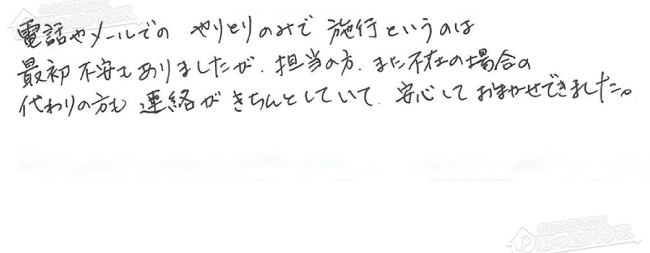 電話やメールでの やりとりのみで 施行というのは
最初 不安もありましたが、担当の方、また不在の場合の
代わりの方も 連絡が きちんとしていて、安心して おまかせできました。